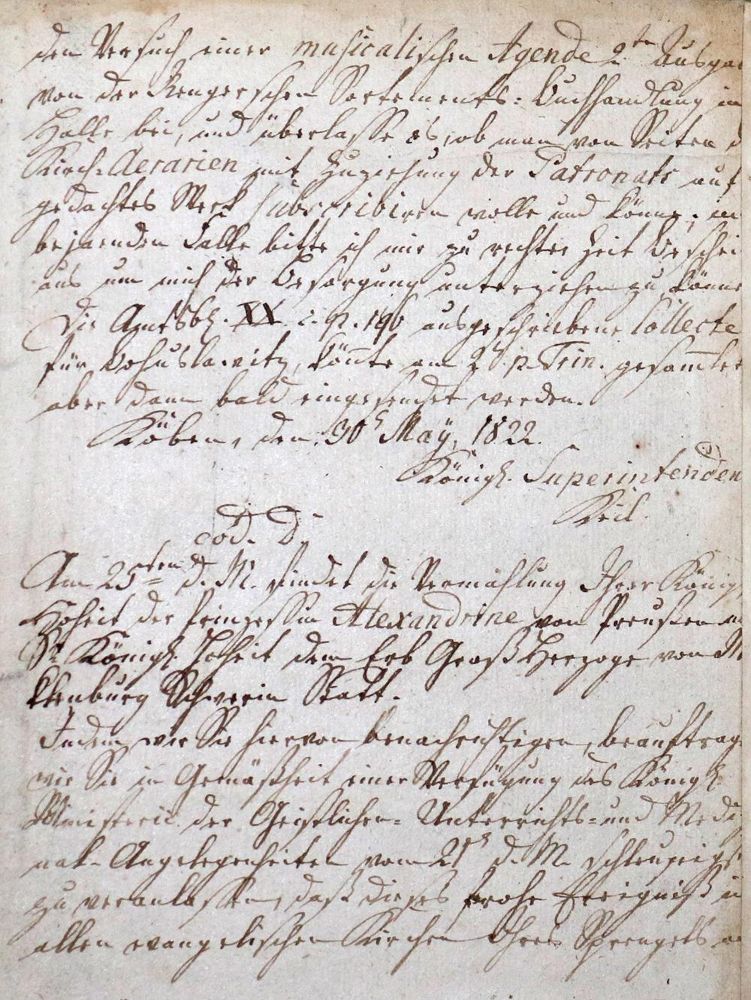 den Versuch einer musicalischen Agende 2te Ausgab
von der Rengerschen Sortements-Buchhandlung in
Halle bei, und überlasse es, ob man von Seiten d
Kirch-Aerarien mit Zuziehung der Patronats auf
gedachtes Werk subscribiren wolle und könne; im
bejaenden Falle bitte ich mir zu rechter Zeit Beschei
aus um mich der Besorgung unterziehen zu könne
Die Amtsbl. XX. c. p. 196 ausgeschriebene Collecte
für Bohuslawitz, könnte am 2 p. Trin. gesammelt
aber dann bald eingesendet werden.
Köben, den 30t May, 1822.
Königl. Superintenden
Keil.
cod. D.
Am 25ten d. M. findet die Vermählung Ihrer Königl
Hoheit der Prinzessin Alexandrine von Preußen m
Sr Königl. Hoheit dem Erb Groß Herzoge von M
klenburg Schwerin Statt.
Indem wir Sie hiervon benachrichtigen, beauftrag
wir Sie in Gemäßheit einer Verfügung des Königl.
Ministerii der Geistlichen- Unterrichts- und Medi
nal- Angelegenheiten vom 21t d. M. schleunigst
zu veranlassen, daß dieses frohe Ereigniß in
allen evangelischen Kirchen Ihres Sprengels a